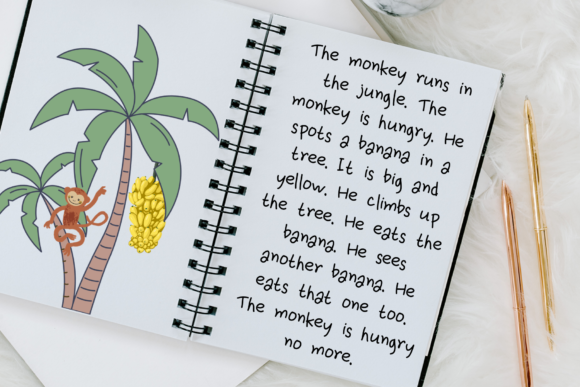 The monkey runs in
the jungle. The
monkey is hungry. He
spots a banana in a
tree. It is big and
yellow. He climbs up
the tree. He eats the
banana. He sees
another banana. He
eats that one too.
The monkey is hungry
no more.